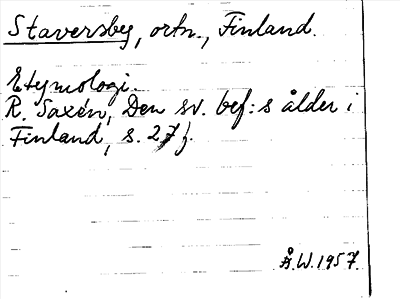 Staversby, ortn., Finland.
Etymologi.
R. Saxén, Den sv. bef:s ålder i
Finland, s. 27 f.
Å.W. 1957.